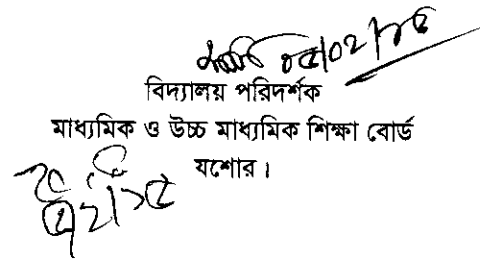 ০৫/০২/১৫
বিদ্যালয় পরিদর্শক
মাধ্যমিক ও উচ্চ মাধ্যমিক শিক্ষা বোর্ড
যশোর।